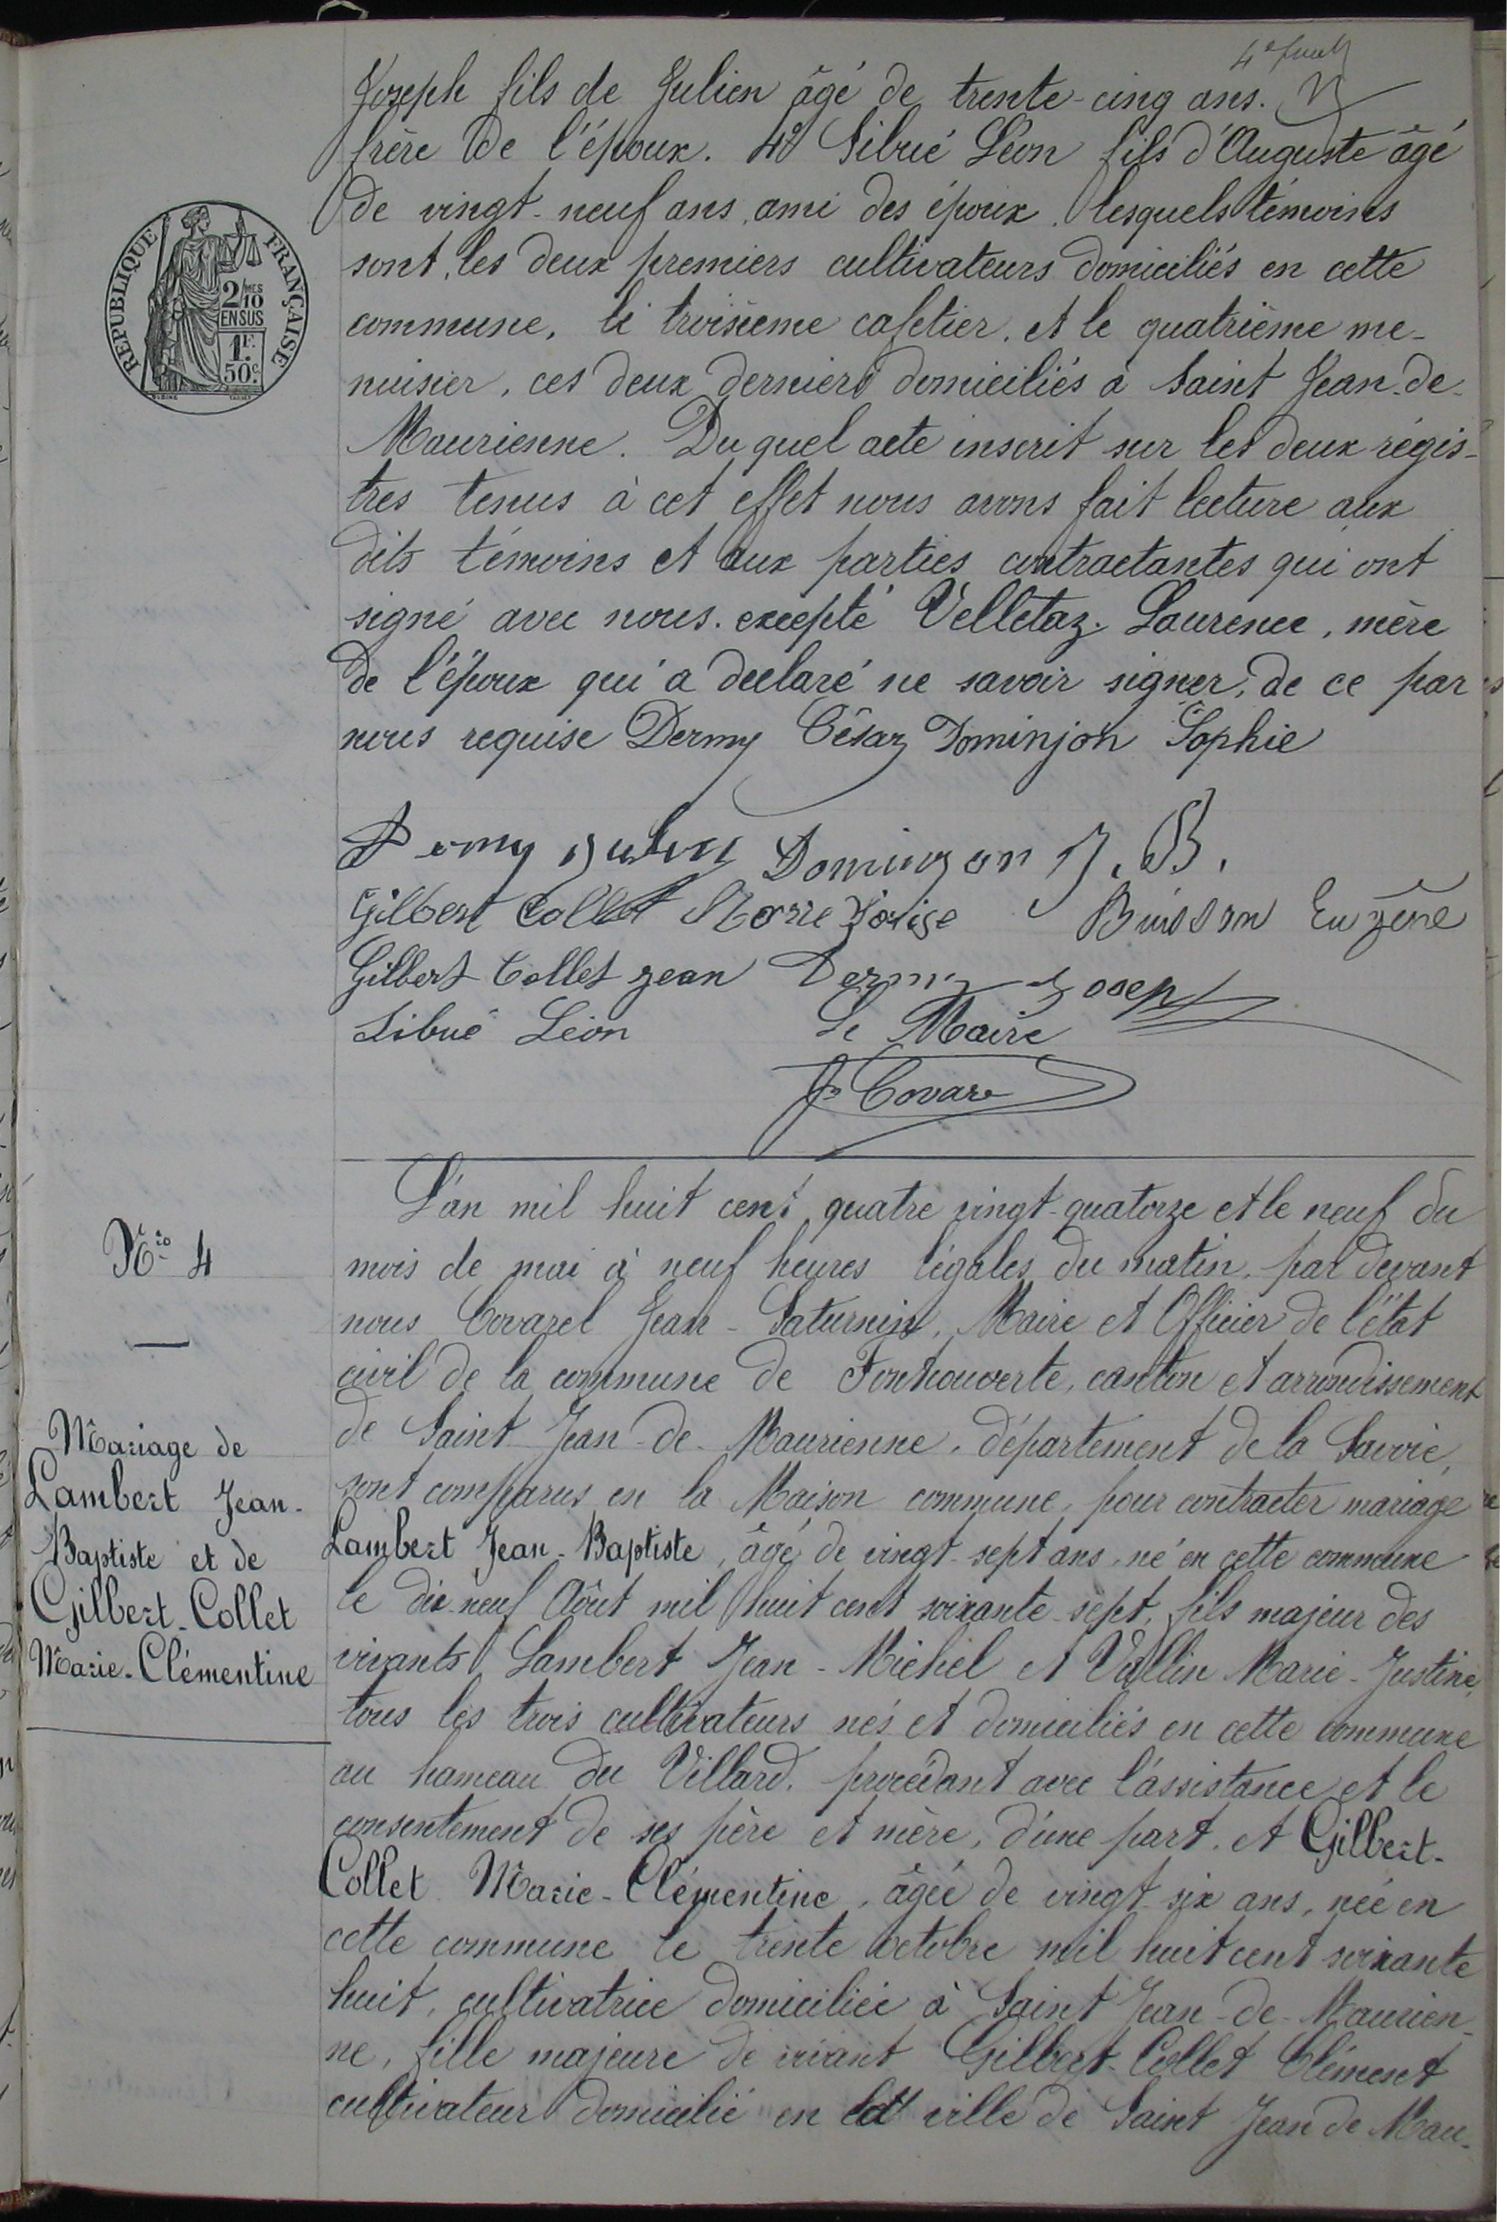 4e
Joseph fils de Julien âgé de trente-cinq ans.
frère de l'époux. 4° Sibué Léon fils d'Auguste âgé
de vingt-neuf ans, ami des époux. lesquels témoins
sont, les deux premiers cultivateurs domiciliés en cette
commune, le troisième cafetier, et le quatrième me-
nuisier, ces deux derniers domiciliés à Saint Jean-de-
Maurienne. Du quel acte inscrit sur les deux régis-
tres tenus à cet effet nous avons fait lecture aux
dits témoins et aux parties contractantes qui ont
signé avec nous. excepté Velletaz Laurence, mère
de l'époux qui a declaré ne savoir signer, de ce par
nous requise Dermy César Dominjon Sophie
REPUBLIQUE FRANÇAISE
2/10MES
EN SUS
1F.
50c.
Domingon J. B.
Gilbert Collet Marie Buisson Eugène
Gilbert Collet Jean Dermy Joseph
Sibué Léon Le Maire
J Covare
Nro 4
Mariage de
Lambert Jean-
Baptiste et de
Gilbert-Collet
Marie-Clémentine
L'an mil huit cent quatre vingt-quatorze et le neuf du
mois de mai à neuf heures légales du matin, par devant
nous Covarel Jean-Saturnin, Maire et Officier de l'état
civil de la commune de Fontcouverte, canton et arrondissement
de Saint Jean-de-Maurienne, département de la Savoie,
sont comparus en la Maison commune, pour contracter mariage
Lambert Jean-Baptiste, âgé de vingt-sept ans, né en cette commune
le dix neuf Août mil huit cent soixante-sept, fils majeur des
vivants Lambert Jean-Michel et Vullin Marie-Justine,
tous les trois cultivateurs nés et domiciliés en cette commune
au hameau du Villard, procédant avec l'assistance et le
consentement de ses père et mère, d'une part. et Gilbert-
Collet Marie-Clémentine, âgée de vingt six ans, née en
cette commune le trente octobre mil huit cent soixante
huit, cultivatrice domiciliée à Saint Jean-de-Maurien-
ne, fille majeure de vivant Gilbert-Collet Clément
cultivateur domicilié en ville de Saint Jean de Mau-